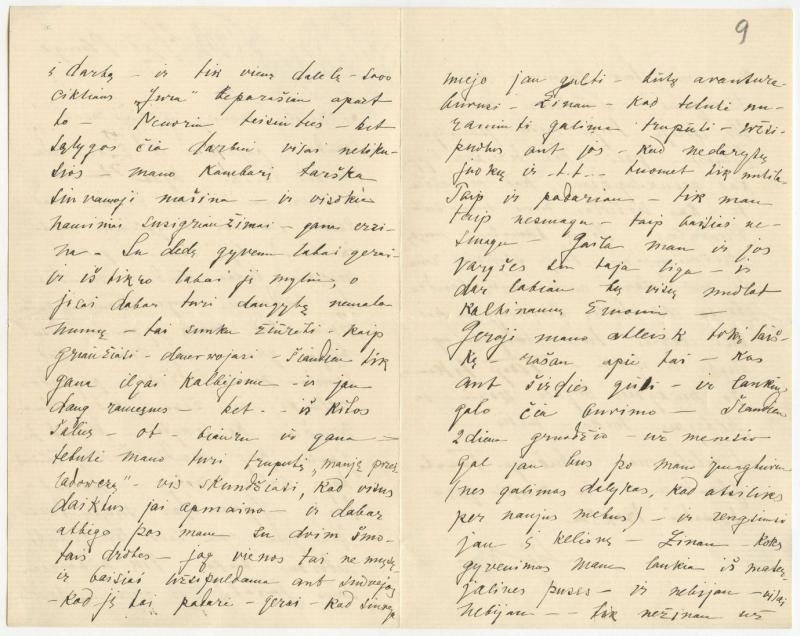 į darbą – ir tik vieną dalelę – savo
cikliaus „Jura" teparašiau apart
to – Nenoriu teisinties – bet
sąlygos čia darbui visai netiku-
sios – mano kambarį tarška
siuvamoji mašina – ir visokie
naminiai susigriaužimai – gana erzi-
na – Su dėdę gyvenu labai gerai –
ir iš tikro labai jį myliu, o
jisai dabar turi daugybę nemalo-
numų – tai sunku žiūrėti – kaip
griaužiasi – denervojasi – šiandien tik
gana ilgai kalbėjome – ir jau
daug ramesnis – bet – iš kitos
šalies – ot – biauru ir gana –
tetutė mano turi truputį „manję prze
ladowczą" – vis skundžiasi, kad visus
daiktus jai apmaino – ir dabar
atbėgo pas mane su dvim šmo-
tais drobės – jog vienos tai ne mūsų
ir baisiai užsipuldama ant siuvėjos
– kad ją tai padarė – gerai – kad siuvėja
9
nuėjo jau gulti – būtų avantura
buvusi – Žinau – kad tetutę nu-
raminti galima truputį – užsi-
puolus ant jos – kad nedarytų
juokų ir t.t. – tuomet tik nutila
Taip ir padariau – tik man
taip nesmagu – taip baisiai ne-
smagu – Gaila man ir jos
vargšės su taja liga – ir
dar labiau tų visų nuolat
kaltinamų žmonių –
Geroji mano atleisk tokį laiš-
ką rašau apie tai – kas
ant širdies guli – ir laukiu
galo čia buvimo – Šiandien
2 diena gruodžio – už mėnesio
gal jau bus po mano
(nes galimas dalykas, kad atsiliks
per naujus metus) – ir rengsiuosi
jau į kelionę – Žinau – koks
gyvenimas mane laukia iš mater-
jalinės pusės – ir nebijau – visai
nebijau – – tik nežinau už